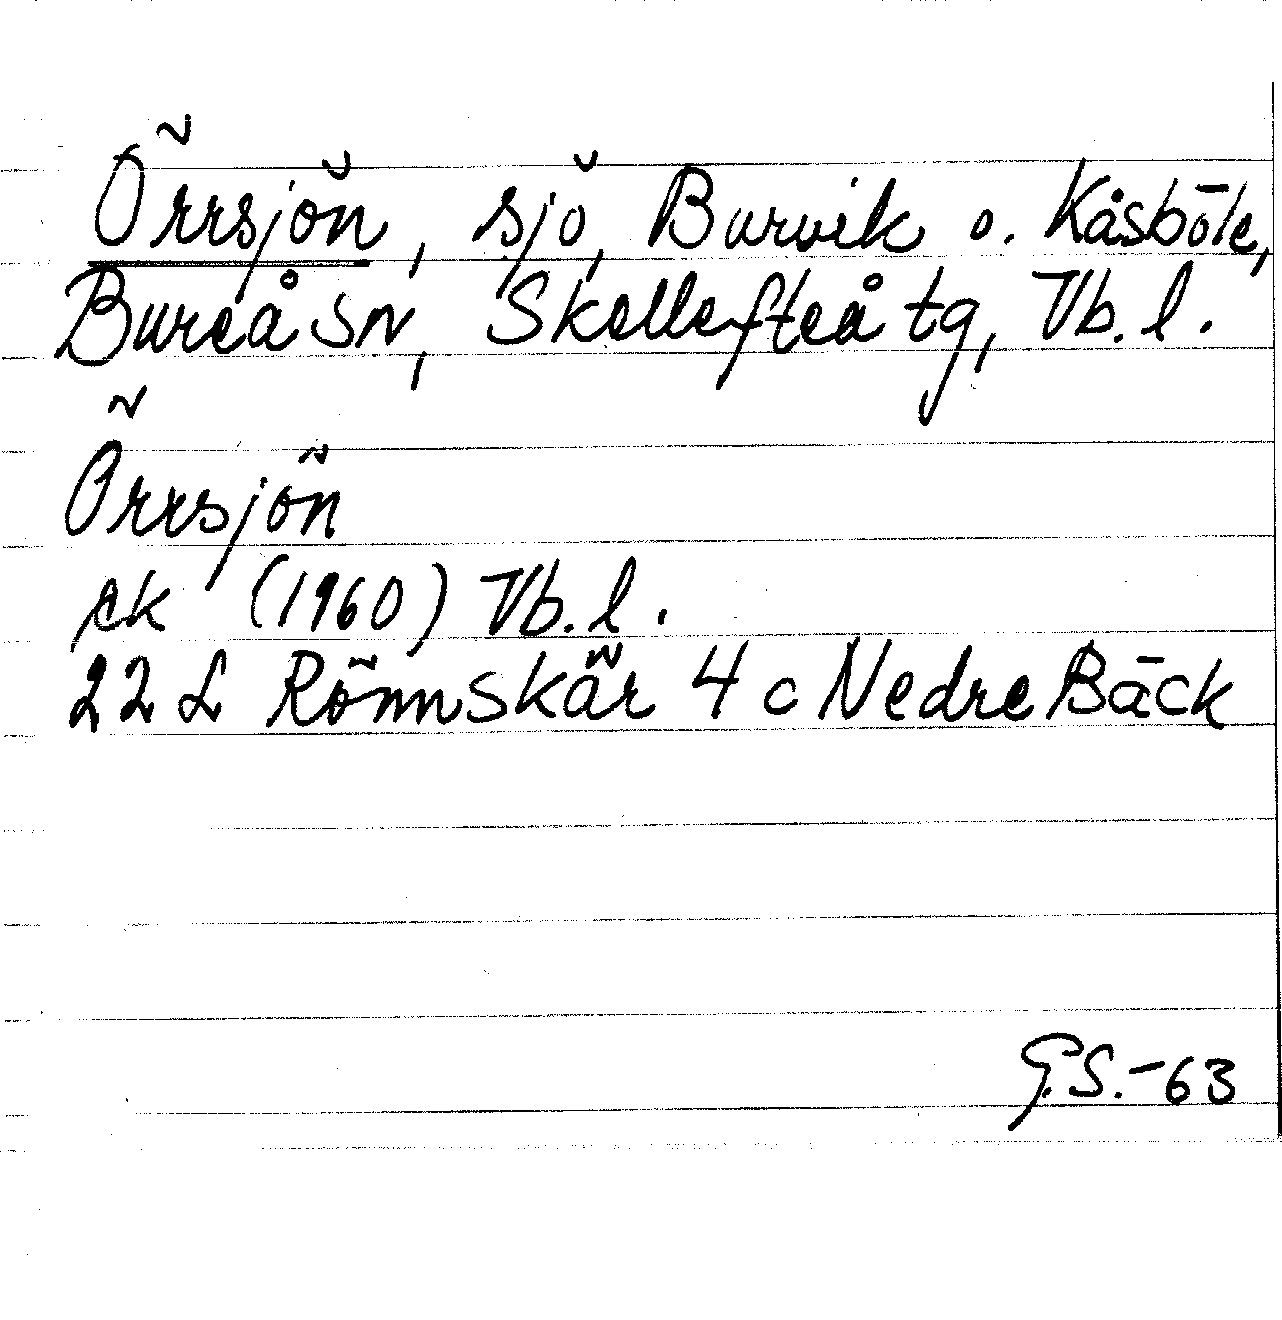 Örrsjön, sjö, Burvik o. Kåsböle,
Bureå sn, Skellefteå tg, Vb. l.
Örrsjön
ek (1960) Vb. l.
22 L Rönnskär 4 c Nedre Bäck
G.S.-63